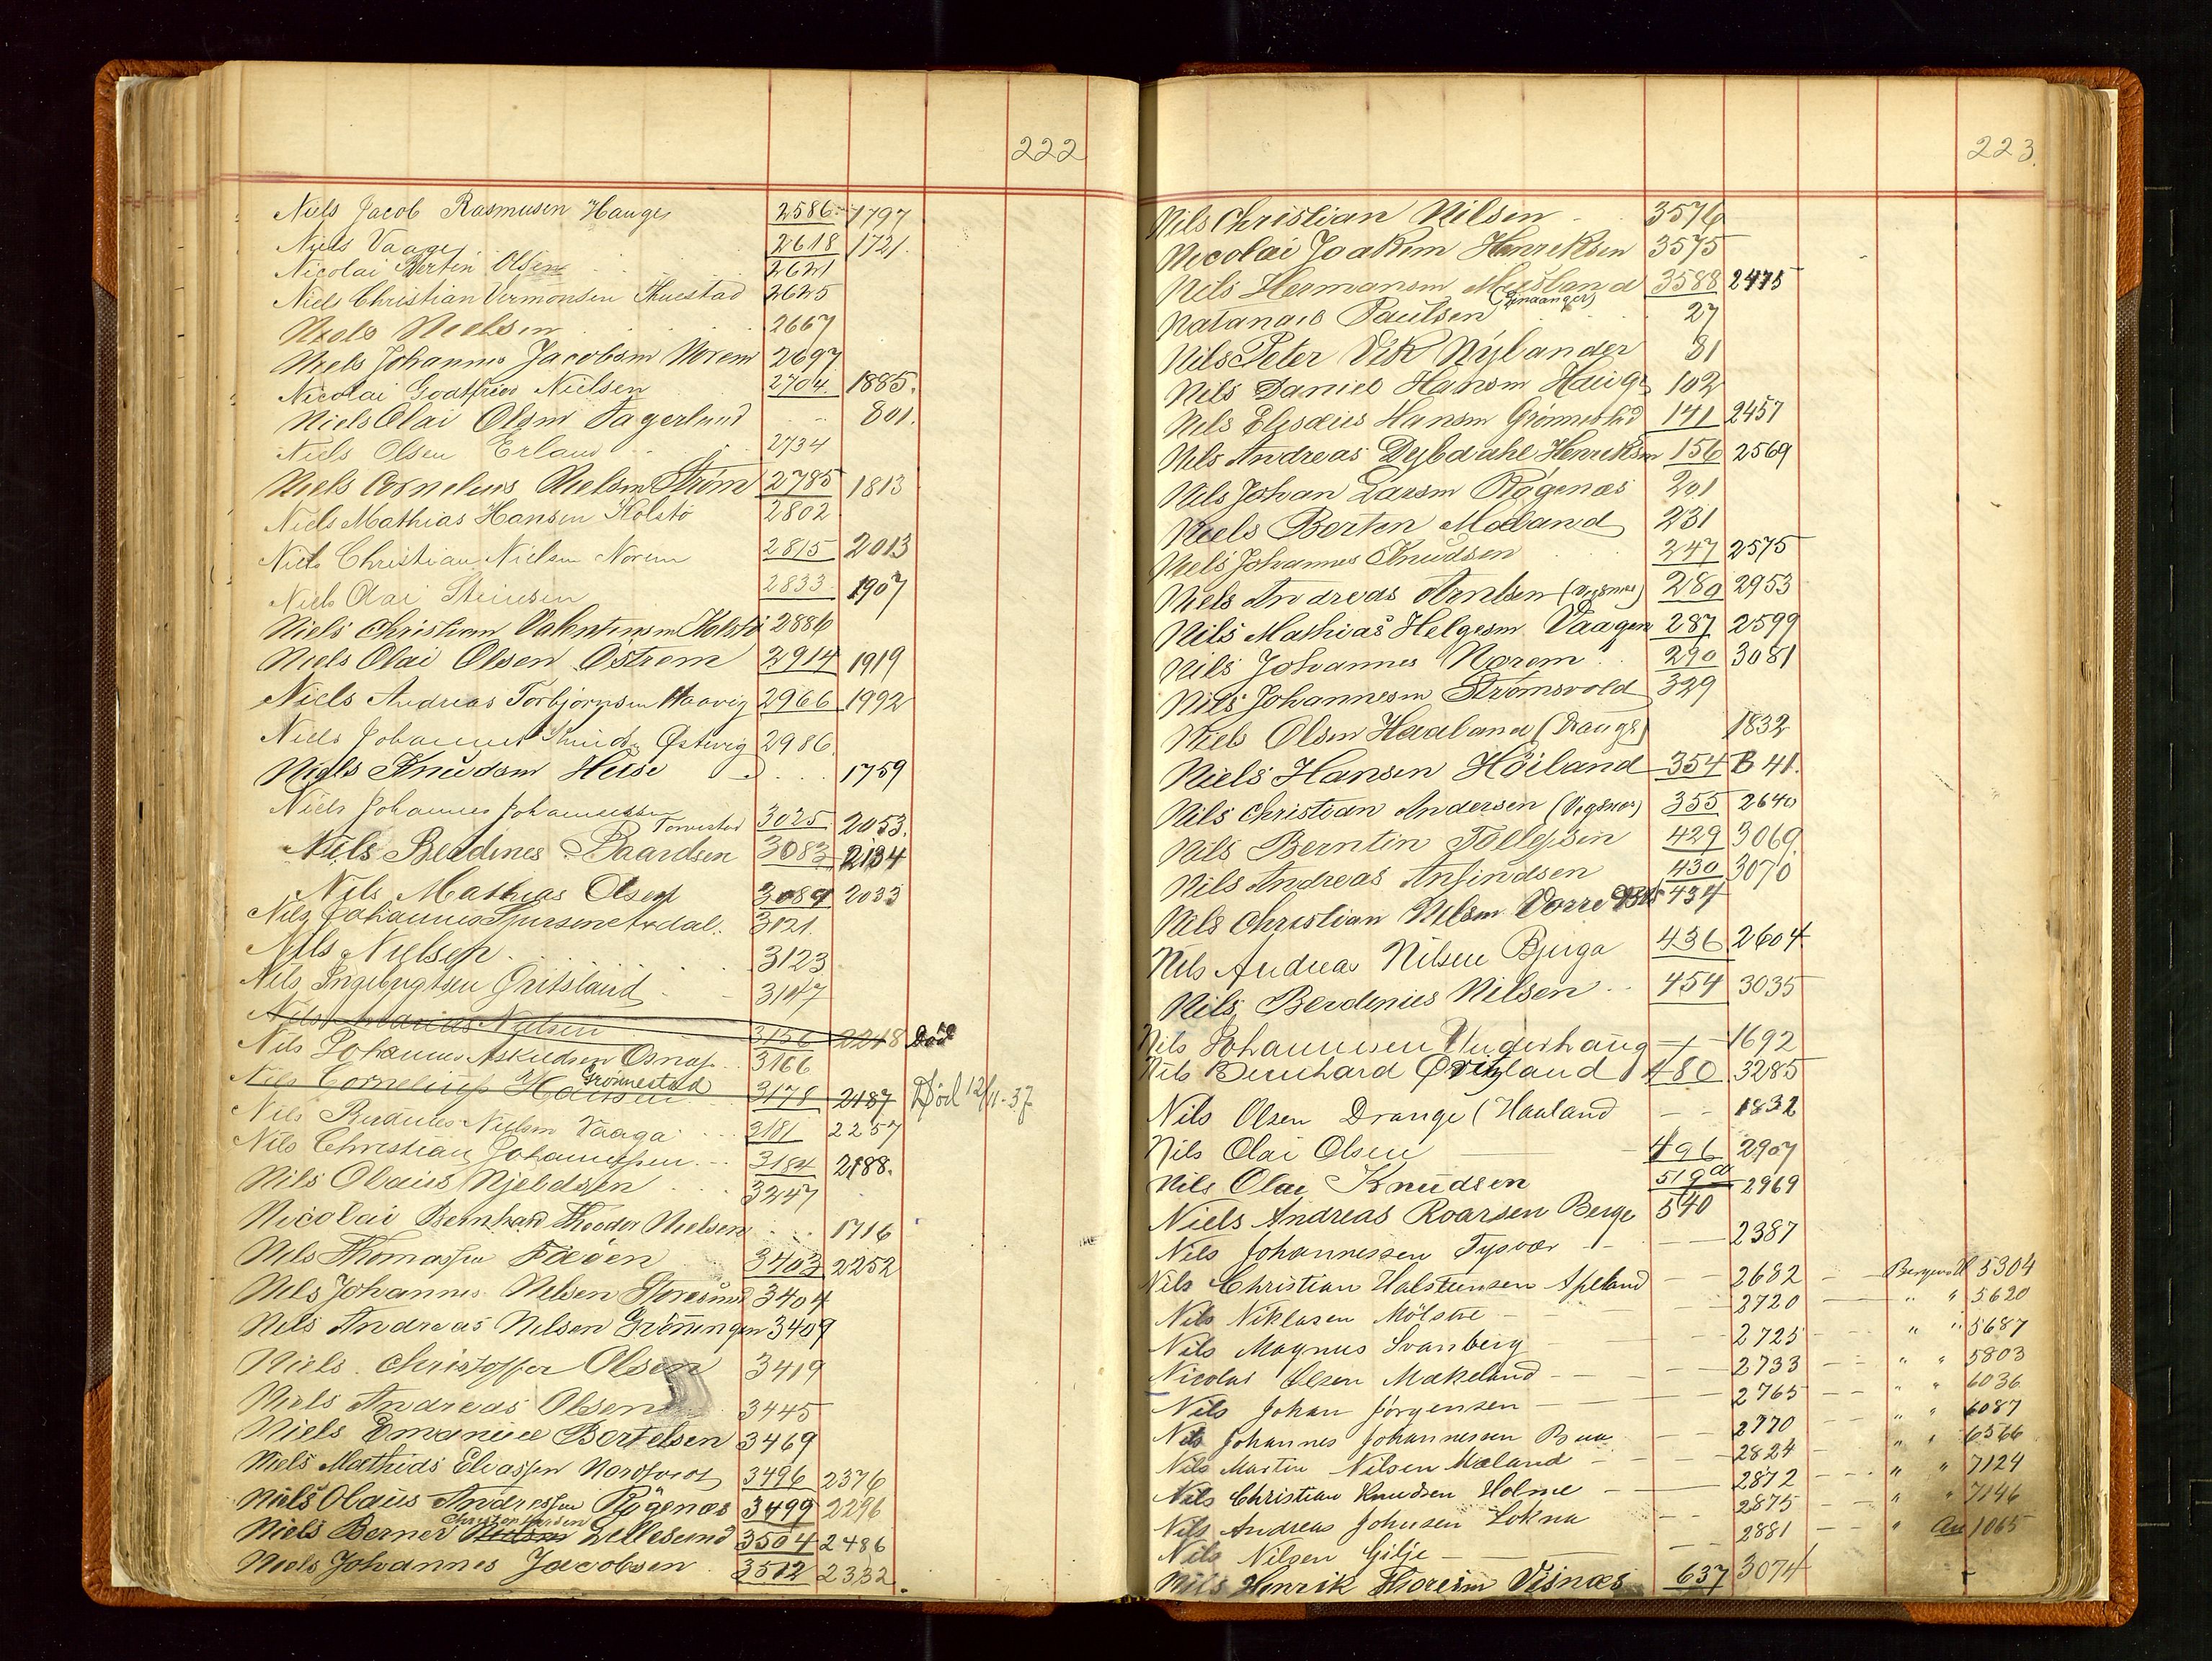 222
Niels Jacob Rasmusen Hauge 2586 1797
Niels Vaage 2618 1721.
Nicolai Bertin Olsen 2621
Niels Christian Vermonsen 2625
Niels Nielsen 2667
Niels Johannes Jacobsen Norem 2697
Nicolai Godtfried Nielsen 2704. 1885.
Niels Olai Olsen Fagerland 801.
Niels Olsen Erland 2734
Niels Cornelius Nielsen Strøm 2785 1813
Niels Mathias Hansen Kolstø 2802
Niels Christian Nielsen Norem 2815 2013
Niels Olai Steinsen 2833. 1907
Niels Christian Valentinsen Kolstø 2886
Niels Olai Olsen Østrem 2914 1919
Niels Andreas Torbjørnsen Haavig 2966 1992
Niels Johannes Knuds. Østevig 2986.
Niels Knudsen Heise 1759
Niels Johannes Johannessen Torvestad 3025. 2053.
Niels Berdines Baardsen 3083 2134
Nils Mathias Olsen 3089 2033
Nils Johannes Sjursen Aadal. 3121.
Nils Nielsen 3123
Nils Ingebrigtsen Gritsland 3147
Nils Nielsen 3156 2218 Død
Nils Johannes Askildsen Osnes 3166
Nils Cornelius Hansen Grønnestad 3178 2187 Død 12/11-37
Nils Nielsen Vaaga 3181 2257
Nils Christian Johannessen 3184 2188.
Nils Olaus Njeldsen 3247
Nicolai Bernhard Theodor Nielsen 1716
Nils Thomassen Fæøen 3403 2252
Nils Johannes Nilsen Storesund 3404
Nils Andreas Nilsen Grønningen 3409
Niels Christoffer Olsen 3419
Niels Andreas Olsen 3445
Niels Emanuel Bertelsen 3469
Niels Mathias Eliassen 3496 2376
Niels Olaus Andressen Røgenæs 3499 2296
Niels Berner Christophersen Lillesund 3504 2486
Niels Johannes Jacobsen 3512 2332.
223.
Nils Christian Nilsen 3576
Nicolai Joakim Henriksen 3575
Nils Hermansen Mæsland 3588 2475
Natanael Paulsen 27
Nils Peter Vik Nylander 81
Nils Daniel Hansen Hauge 102
Nils Elisæus Hansen Grønnestad 141 2457
Nils Andreas Dybdahl Henriksen 156 2569
Nils Johan Larsen Røgenæs 201
Niels Bertin Moland 231
Niels Johannes Knudsen 247 2575
Niels Andreas Arntsen (Vigsnes) 280 2953
Nils Mathias Helgesen Vaagen 287 2599
Nils Johannes Norem 290 3081
Nils Johannesen Strømsvold 329
Niels Olsen Haaland (Drange) 1832
Niels Hansen Høiland 354 B 41.
Nils Christian Andersen (Vigsnes) 355 2640
Nils Berntin Tollefsen 429 3069.
Nils Andreas Anfindsen 430 3070
Nils Christian Nilsen 434
Nils Andreas Nilsen Bjerga 436 2604
Nils Berdinius Nilsen 454 3035
Nils Johannesen Ungerhaug 1692
Nils Bernhard Øvitzland 480 3285
Nils Olsen Drange (Haaland 1832
Nils Olai Olsen 496 2907
Nils Olai Knudsen 519 2969
Niels Andreas Roarsen Berge 540
Nils Johannessen Tysvær 2387
Nils Christian Halsteinsen Apeland 2682 5304
Nils Niklasen Mölstre 2720 " " 5620
Nils Magnus Svanberg 2725 " " 5687
Nicolas Olsen Makeland 2733 " " 5803
Nils Johan Jørgensen 2765 " " 6036
Nils Johannes Johannessen Bua 2770 " " 6087
Nils Martin Nilsen Mæland 2824 " " 6566
Nils Christian Knudsen Holme 2872 " " 7124
Nils Andreas Johnsen Lokna 2875 " " 7146
Nils Nilsen Gilje 2881 " 1065
Nils Henrik Thoresen Visnæs 637 3074